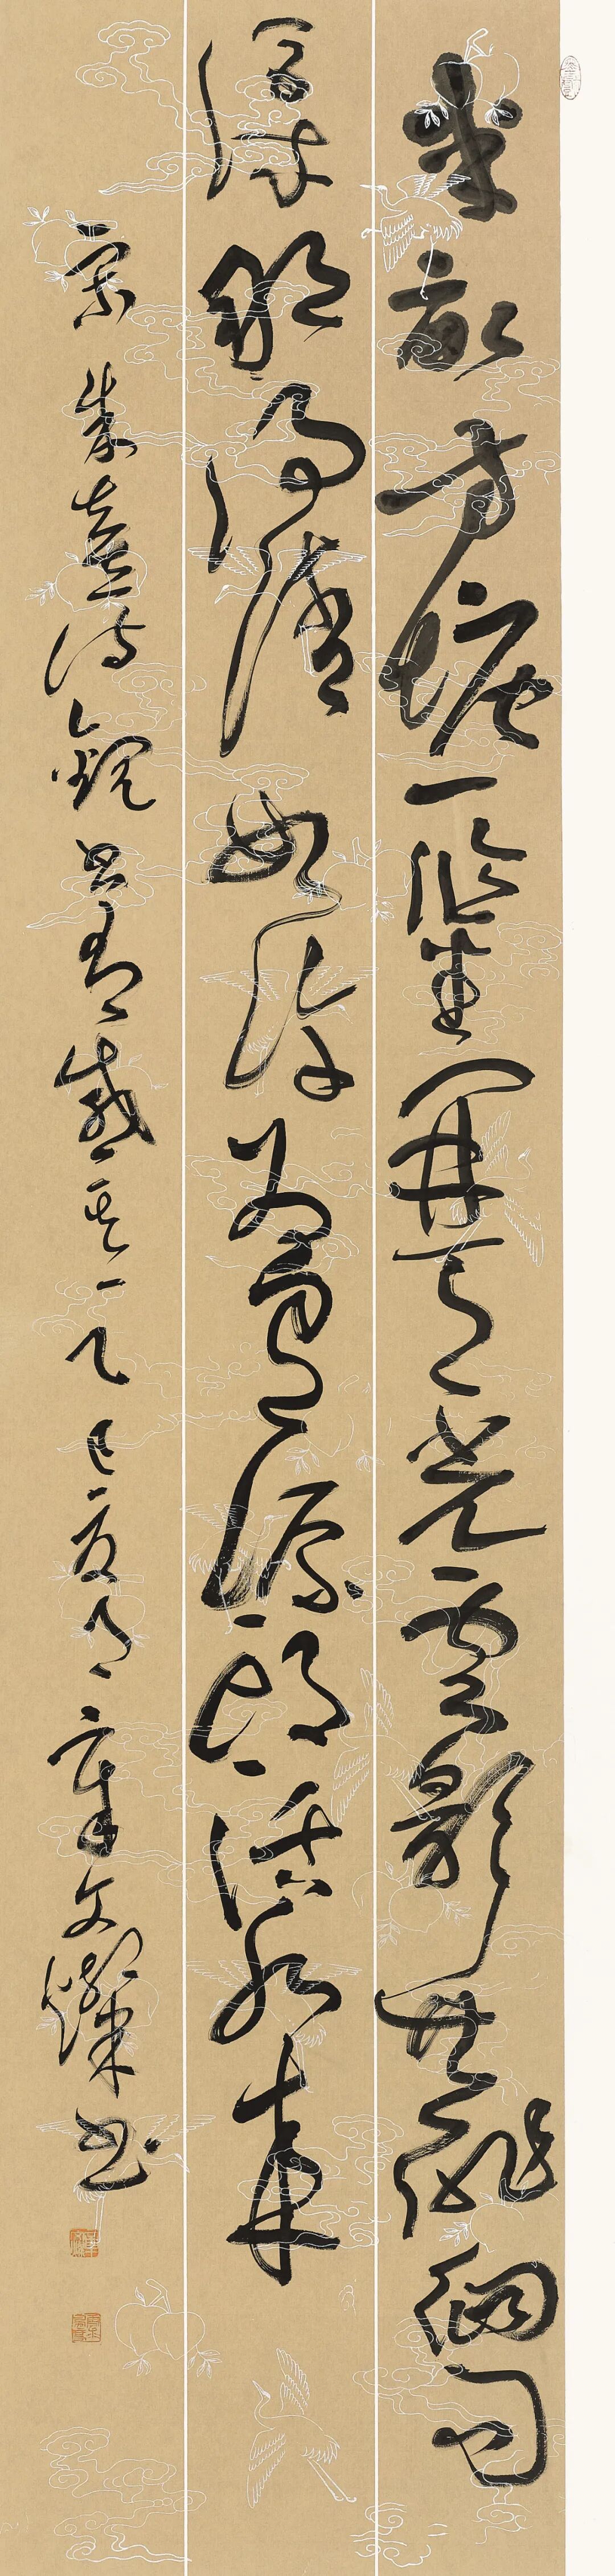 半畝方塘一鑒開天光雲影共徘徊問
渠那得清如許為有源頭活水來
宋朱熹詩觀書有感其一乙巳夏月章文燦書